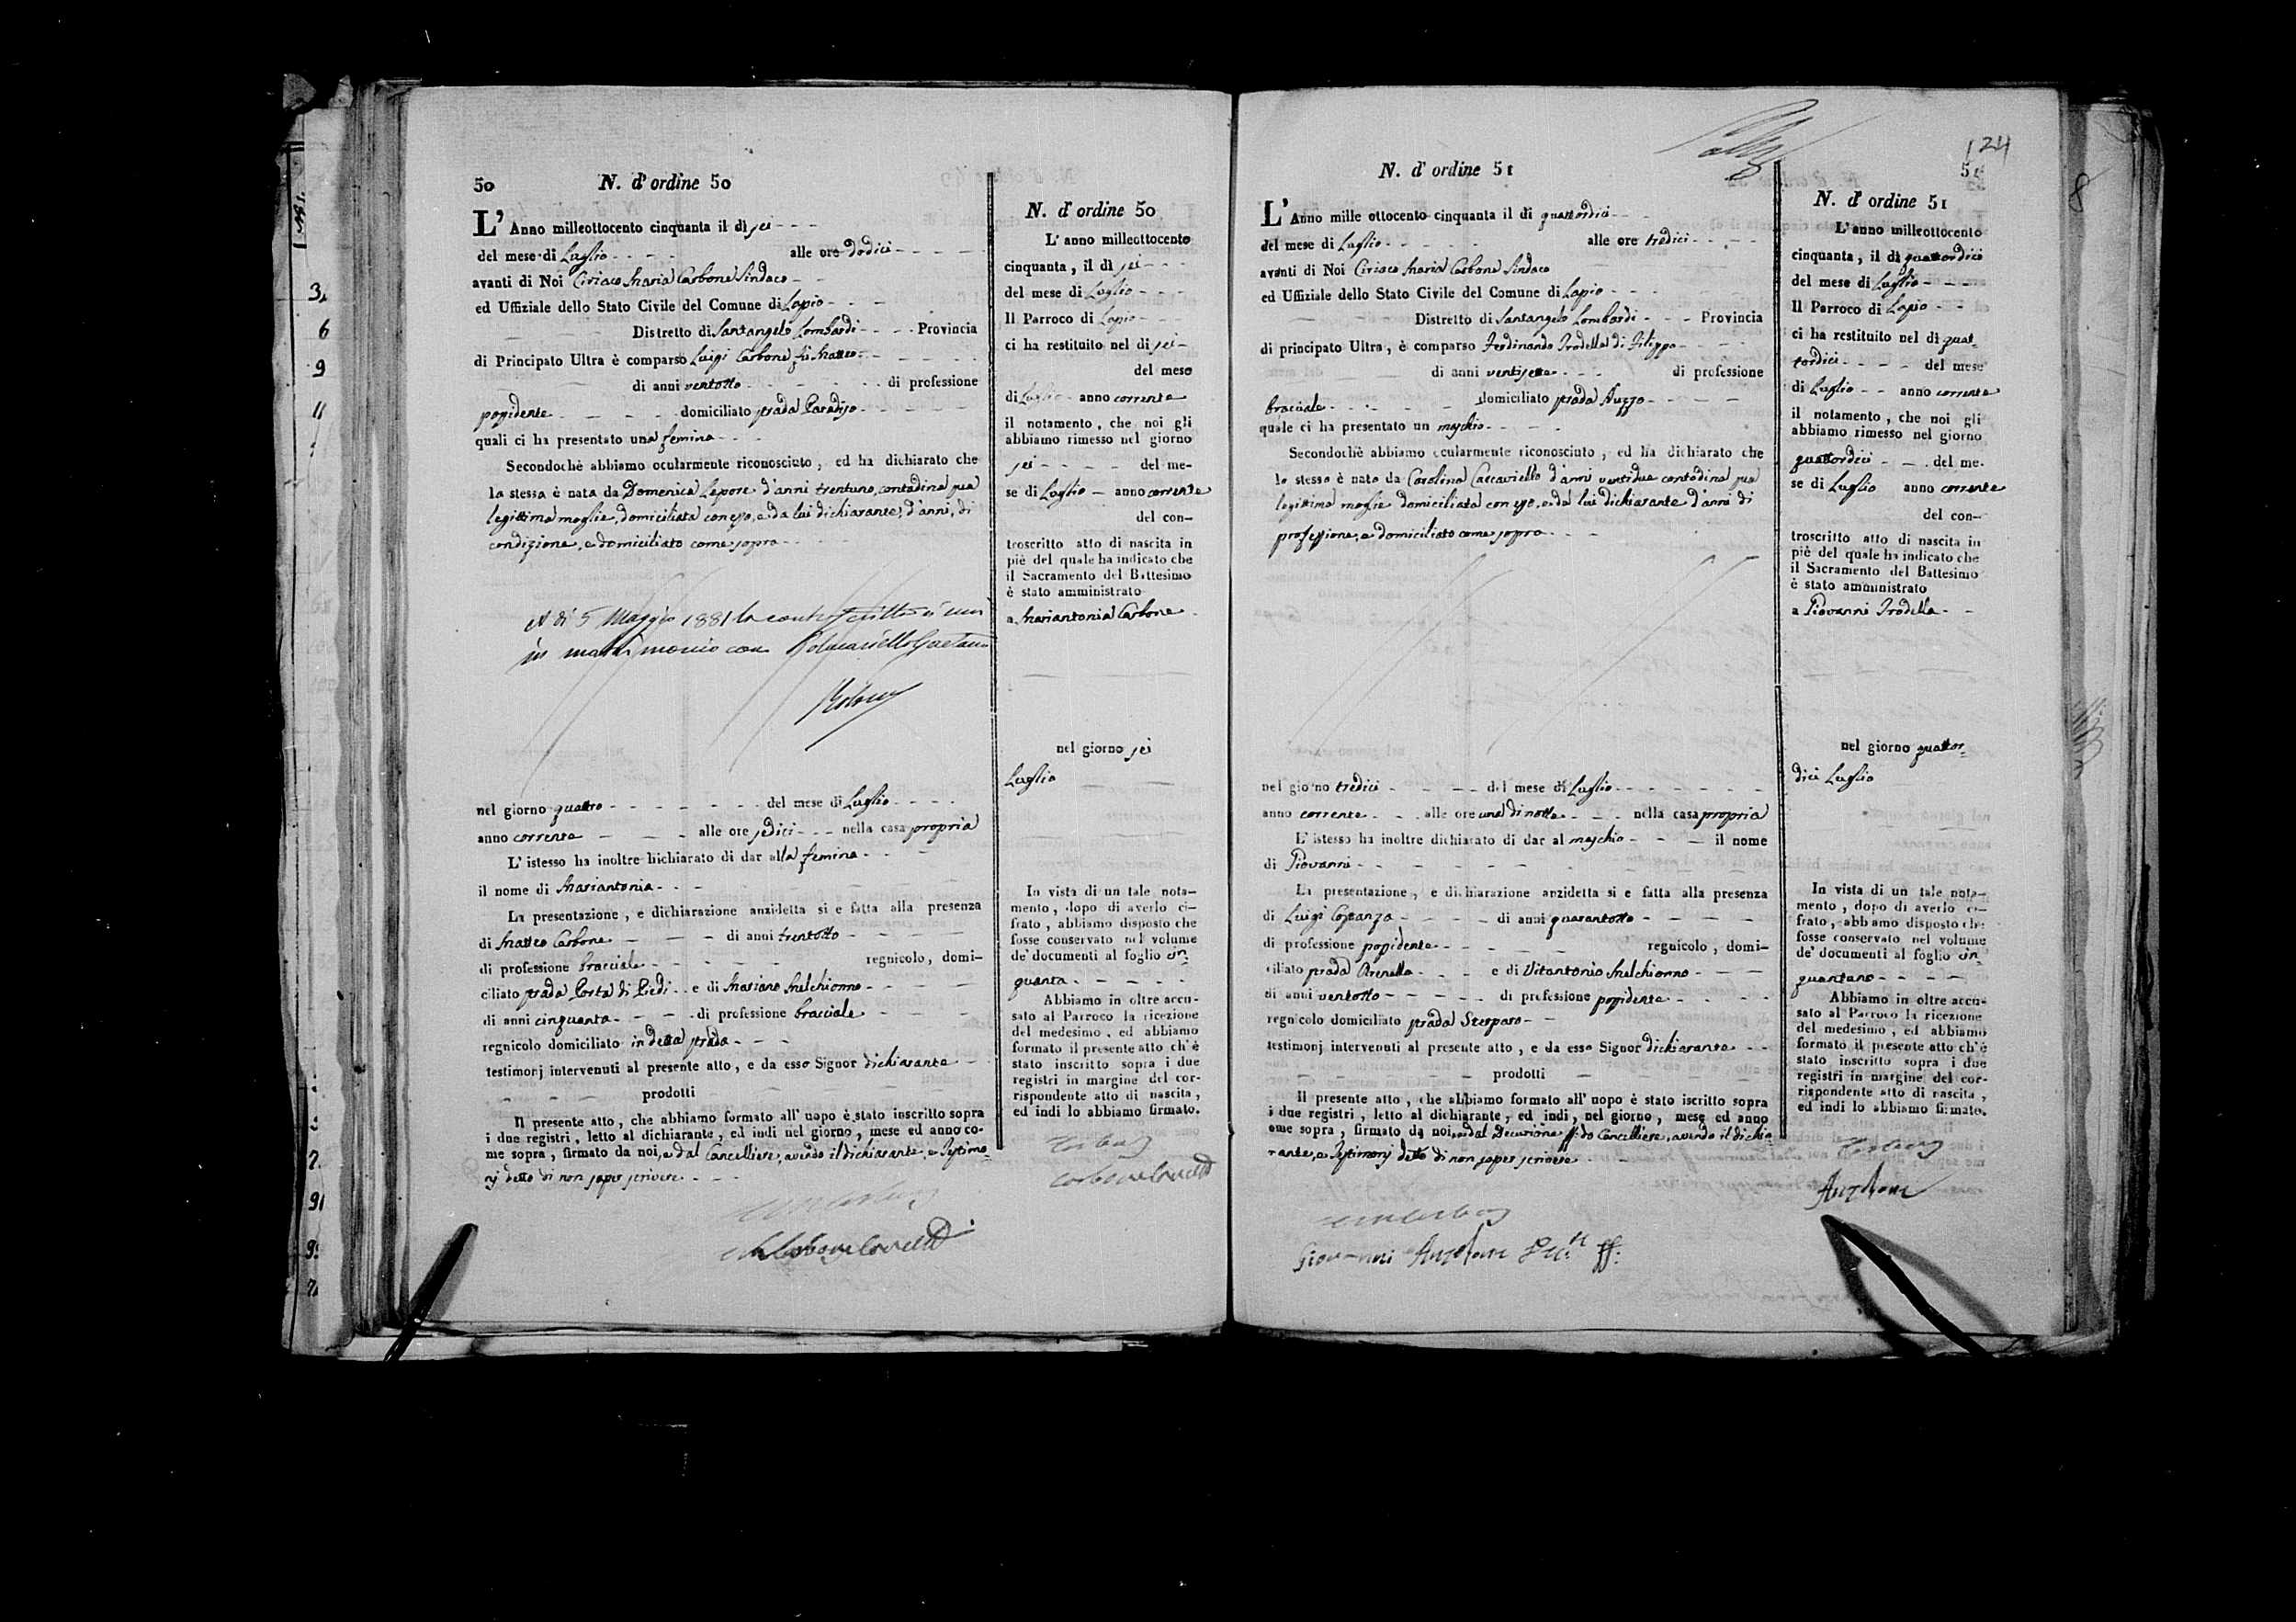 50 N. d' ordine 50
L' Anno milleottocento cinquanta il dì sei
del mese di Luglio alle ore dodici
avanti di Noi Ciriaco Maria Carbone Sindaco
ed Uffiziale dello Stato Civile del Comune di Lapio
Distretto di Santangelo Lombardi Provincia
di Principato Ultra è comparso Luigi Carbone fu Matteo
di anni ventotto di professione
possidente domiciliato strada Paradiso
quali ci ha presentato una femina
Secondochè abbiamo ocularmente riconosciuto, ed ha dichiarato che
la stessa è nata da Domenica Lepore d'anni trentuno, contadina sua
legittima moglie, domiciliata con esso, e da lui dichiarante, d'anni, di
condizione, e domiciliato come sopra
A dì 5 Maggio 1881 la controscritta si unì
in matrimonio con Gaetano
nel giorno quattro del mese di Luglio
anno corrente alle ore sedici nella casa propria
L' istesso ha inoltre hichiarato di dar alla femina
il nome di Mariantonia
La presentazione, e dichiarazione anzidetta si e fatta alla presenza
di Matteo Carbone di anni trentotto
di professione bracciale regnicolo, domi-
ciliato strada Porta di Piedi e di Mariano Melchionno
di anni cinquanta di professione bracciale
regnicolo domiciliato in detta strada
testimonj intervenuti al presente atto, e da esso Signor dichiarante
prodotti
Il presente atto, che abbiamo formato all' uopo è stato inscritto sopra
i due registri, letto al dichiarante, ed indi nel giorno, mese ed anno co-
me sopra, firmato da noi, e dal Cancelliere, avendo il dichiarante, e Testimo-
nj detto di non saper scrivere
N. d' ordine 50
L' anno milleottocento
cinquanta, il dì sei
del mese di Luglio
Il Parroco di Lapio
ci ha restituito nel dì sei
del mese
di Luglio anno corrente
il notamento, che noi gli
abbiamo rimesso nel giorno
sei del me-
se di Luglio anno corrente
del con-
troscritto atto di nascita in
piè del quale ha indicato che
il Sacramento del Battesimo
è stato amministrato
a Mariantonia Carbone
nel giorno sei
Luglio
In vista di un tale nota-
mento, dopo di averlo ci-
frato, abbiamo disposto che
fosse conservato nel volume
de' documenti al foglio cin-
quanta
Abbiamo in oltre accu-
sato al Parroco la ricezione
del medesimo, ed abbiamo
formato il presente atto ch'è
stato inscritto sopra i due
registri in margine del cor-
rispondente atto di nascita,
ed indi lo abbiamo firmato.
124
N. d' ordine 51 51
L' Anno mille ottocento cinquanta il dì quattordici
del mese di Luglio alle ore tredici
avanti di Noi Ciriaco Maria Carbone Sindaco
ed Uffiziale dello Stato Civile del Comune di Lapio
Distretto di Santangelo Lombardi Provincia
di principato Ultra, è comparso Ferdinando Trodella di Filippo
di anni ventisette di professione
bracciale domiciliato strada Auzzo
quale ci ha presentato un maschio
Secondochè abbiamo ocularmente riconosciuto, ed ha dichiarato che
lo stesso è nato da Carolina Caccaviello d'anni ventidue contadina sua
legittima moglie domiciliata con esso, e da lui dichiarante d'anni di
professione, e domiciliato come sopra
nel giorno tredici del mese di Luglio
anno corrente alle ore una di notte nella casa propria
L' istesso ha inoltre dichiarato di dar al maschio il nome
di Giovanni
La presentazione, e dichiarazione anzidetta si e fatta alla presenza
di Luigi Costanza di anni quarantotto
di professione possidente regnicolo, domi-
ciliato strada Arenella e di Vitantonio Melchionno
di anni ventotto di professione possidente
regnicolo domiciliato strada
testimonj intervenuti al presente atto, e da esso Signor dichiarante
prodotti
Il presente atto, che abbiamo formato all' uopo è stato iscritto sopra
i due registri, letto al dichiarante, ed indi, nel giorno, mese ed anno
ome sopra, firmato da noi, e dal Decurione ff. da Cancelliere, avendo il dichia-
rante, e Testimonj detto di non saper scrivere
Giovanni ff:
N. d' ordine 51
L' anno milleottocento
cinquanta, il dì quattordici
del mese di Luglio
Il Parroco di Lapio
ci ha restituito nel dì quat-
tordici del mese
di Luglio anno corrente
il notamento, che noi gli
abbiamo rimesso nel giorno
quattordici del me-
se di Luglio anno corrente
del con-
troscritto atto di nascita in
piè del quale ha indicato che
il Sacramento del Battesimo
è stato amministrato
a Giovanni Trodella
nel giorno quattor-
dici Luglio
In vista di un tale nota-
mento, dopo di averlo ci-
frato, abbiamo disposto che
fosse conservato nel volume
de' documenti al foglio cin-
quantuno
Abbiamo in oltre accu-
sato al Parroco la ricezione
del medesimo, ed abbiamo
formato il presente atto ch'è
stato inscritto sopra i due
registri in margine del cor-
rispondente atto di nascita,
ed indi lo abbiamo firmato.